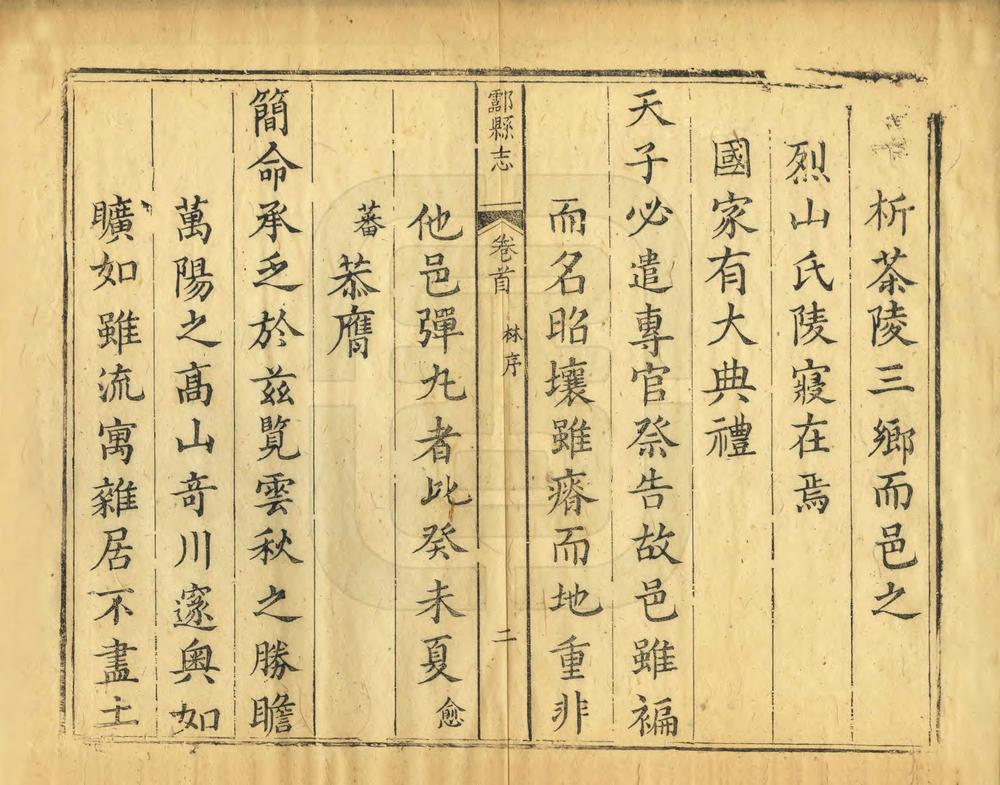 析茶陵三鄉而邑之
烈山氏陵寢在焉
國家有大典禮
天子必遣專官祭告故邑雖褊
而名昭壤雖瘠而地重非
酃縣志 卷首 林序 二
他邑彈丸者比癸未夏愈
蕃恭膺
簡命承乏於兹覽雲秋之勝瞻
萬陽之高山竒川邃奥如
曠如雖流寓雜居不盡土